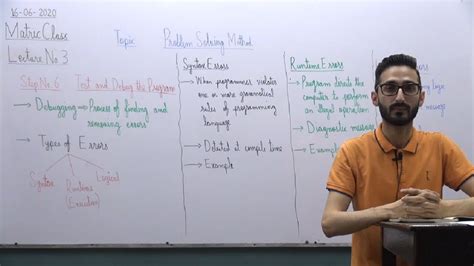 16-06-2020
Matric Class
Lecture No 3
Topic Problem Solving Method
Step No. 6 Test and Debug the Program
→ Debugging → Process of finding and
removing errors
→ Types of Errors
Syntax Runtime Logical
(Execution)
Syntax Errors
→ When programmer violates
one or more grammatical
rules of programming
language
→ Detected at compile time
→ Example
Runtime Errors
→ Program directs the
computer to perform
an illegal operation
→ Diagnostic message
→ Example
logic
message